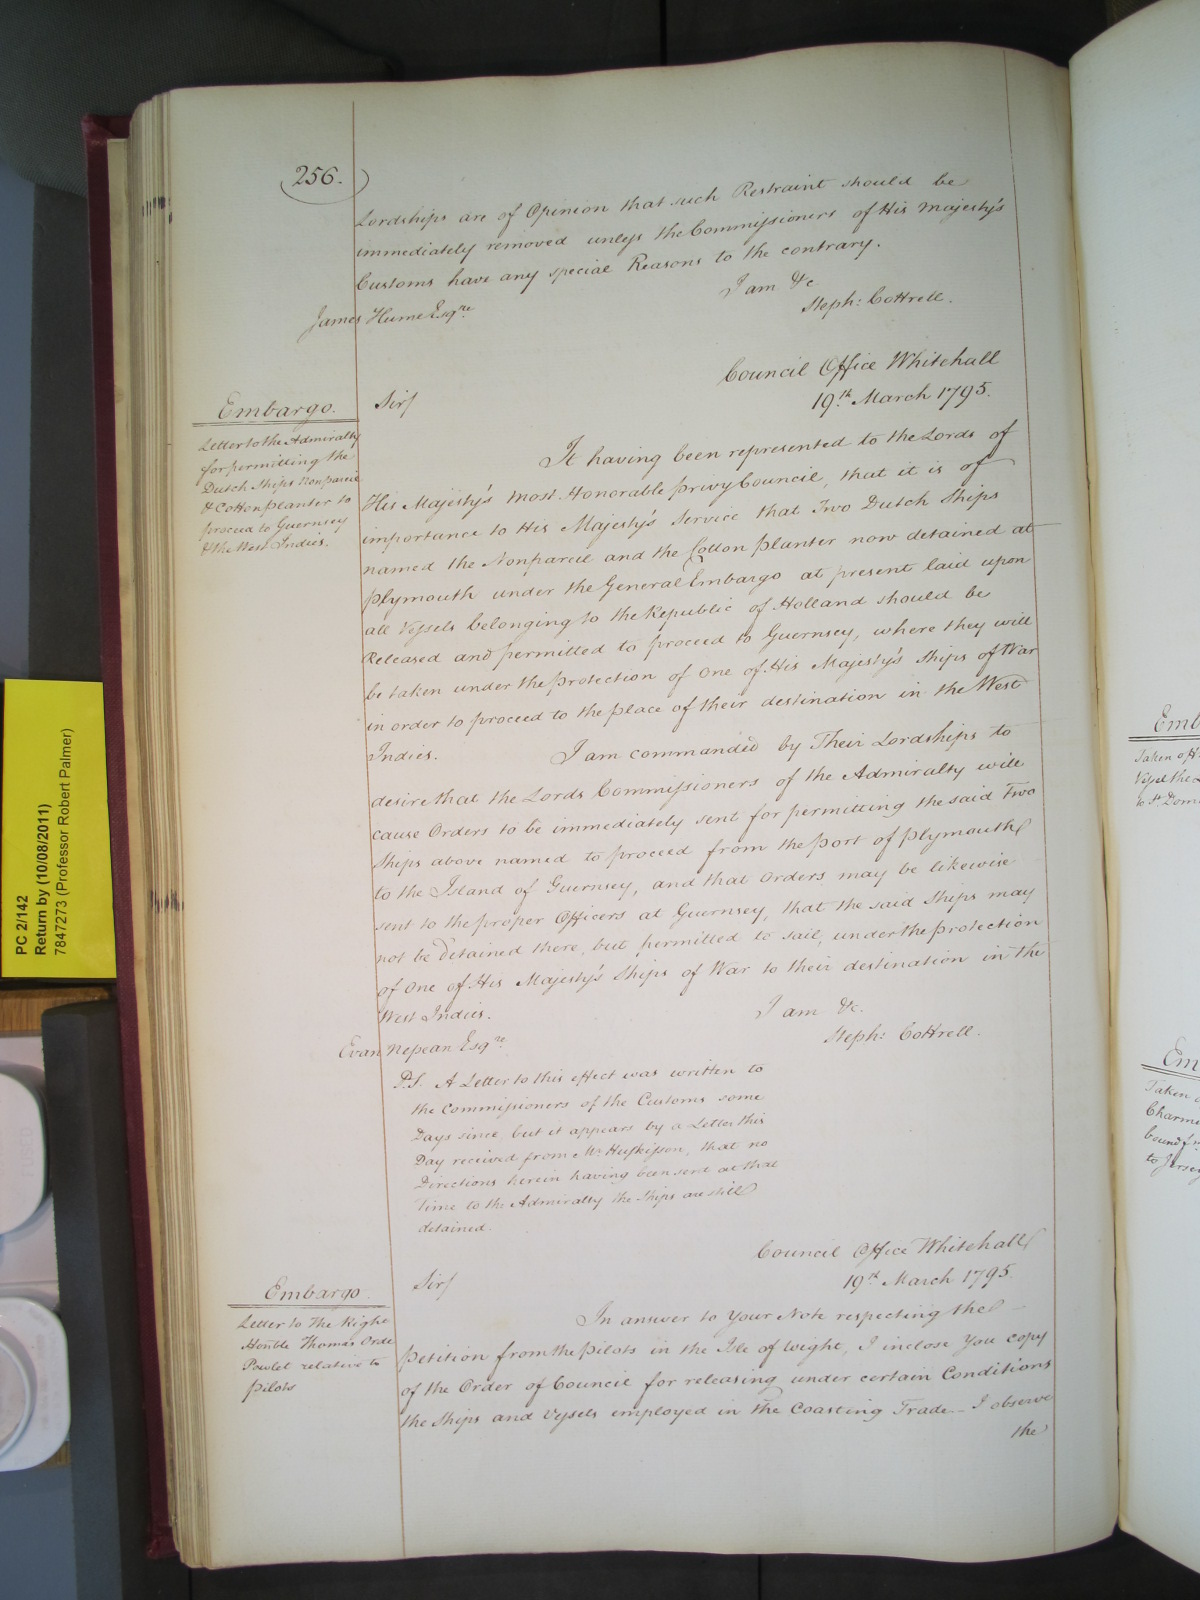 256.
Lordships are of Opinion that such Restraint should be
immediately removed unless the Commissioners of His Majesty's
Customs have any special Reasons to the contrary.
I am &c
Steph: Cottrell.
James Hume Esqre
Council Office Whitehall
19th March 1795.
Embargo.
Letter to the Admiralty
for permitting the
Dutch Ships Nonpareil
& Cotton planter to
proceed to Guernsey
& the West Indies.
Sir/
It having been represented to the Lords of
His Majesty's most Honorable privy Council, that it is of
importance to His Majesty's Service that Two Dutch Ships
named the Nonpareil and the Cotton planter now detained at
plymouth under the General Embargo at present laid upon
all Vessels belonging to the Republic of Holland should be
Released and permitted to proceed to Guernsey, where they will
be taken under the protection of one of His Majesty's Ships of War
in order to proceed to the place of their destination in the West
Indies. I am commanded by Their Lordships to
desire that the Lords Commissioners of the Admiralty will
cause Orders to be immediately sent for permitting the said Two
Ships above named to proceed from the port of plymouth
to the Island of Guernsey, and that Orders may be likewise
sent to the proper Officers at Guernsey, that the said Ships may
not be Detained there, but permitted to sail, under the protection
of one of His Majesty's Ships of War to their destination in the
West Indies.
I am &c.
Steph: Cottrell.
Evan Nepean Esqre
P.S. A Letter to this effect was written to
the Commissioners of the Customs some
Days since but it appears by a Letter this
Day received from Mr Huskisson, that no
Directions herein having been sent at that
time to the Admiralty the Ships are still
detained.
Council Office Whitehall
19th March 1795.
Embargo
Letter to The Right
Honble Thomas Orde
Powlet relative to
pilots
Sir/
In answer to Your Note respecting the
petition from the pilots in the Isle of wight, I inclose You copy
of the Order of Council for releasing under certain Conditions
the Ships and Vessels employed in the Coasting Trade - I observe
the
PC 2/142
Return by (10/08/2011)
7847273 (Professor Robert Palmer)
Emb
Taken off
Vessel the
to St Dom
Em
Taken
Charm
bound fm
to Jersey